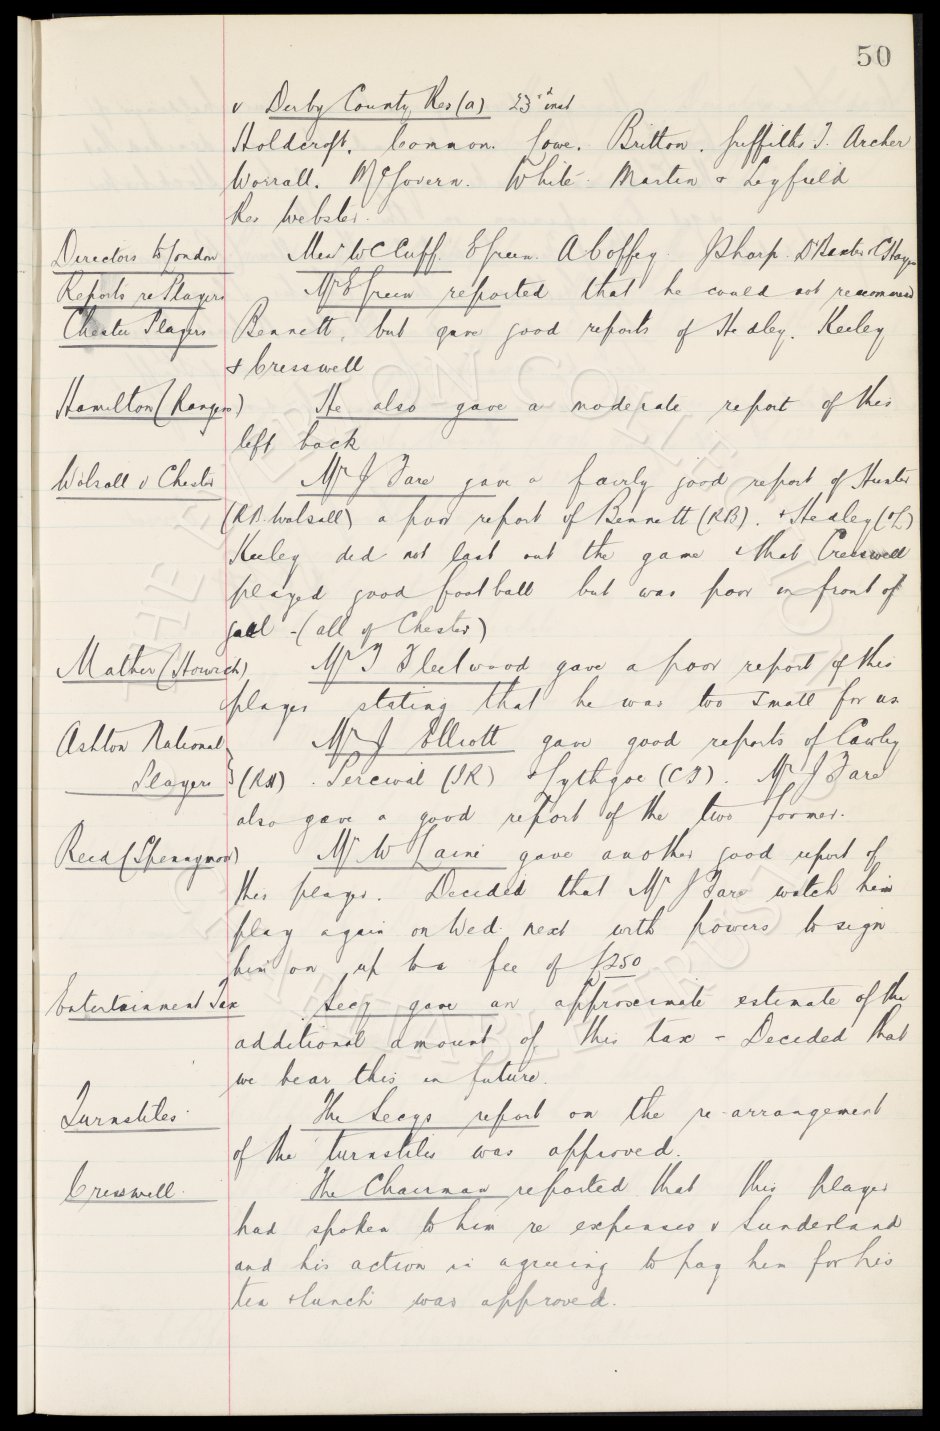 50
v Derby County Res (a) 23rd inst
Holdcroft. Common. Lowe. Britton. Griffiths T. Archer
Worrall. McGovern. White. Martin & Leyfield
Res Webster.
Directors to London
Messrs W C Cuff. E Green. A Coffey. J Sharp. Dr Baxter & C S Hayes
Reports re Players
Mr E Green reported that he could not recommend
Chester Players
Bennett, but gave good reports of Hedley, Keeley
& Cresswell
Hamilton (Rangers)
He also gave a moderate report of this
left back
Walsall v Chester
Mr J Fare gave a fairly good report of Hunter
(RB. Walsall) a poor report of Bennett (RB). & Hedley (OL)
Keeley did not last out the game & that Cresswell
played good football but was poor in front of
goal - (all of Chester)
Mather (Horwich)
Mr T Fleetwood gave a poor report of this
player stating that he was too small for us.
Ashton National
Mr J Elliott gave good reports of Cawley
Players }
(RH). Percival (IR) & Lythgoe (CF). Mr J Fare
also gave a good report of the two former.
Reed (Spennymoor)
Mr W Laine gave another good report of
this player. Decided that Mr J Fare watch him
play again on Wed. next with powers to sign
him on up to a fee of £250
Entertainment Tax
Secy gave an approximate estimate of the
additional amount of this tax - Decided that
we bear this in future.
Turnstiles
The Secys report on the re-arrangement
of the turnstiles was approved.
Cresswell.
The Chairman reported that this player
had spoken to him re expenses v Sunderland
and his action in agreeing to pay him for his
tea & lunch was approved.
THE EVERTON COLLECTION CHARITABLE TRUST